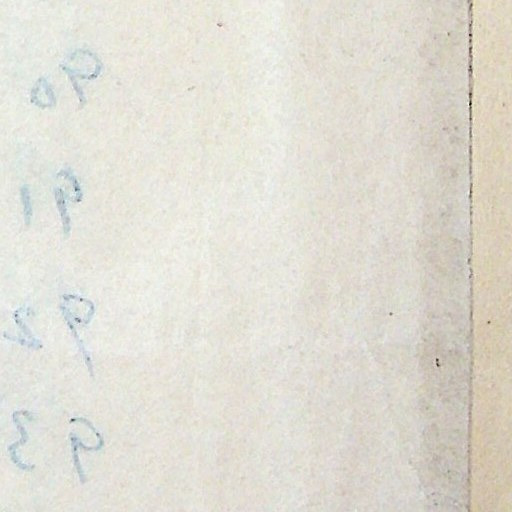 90
91
92
93